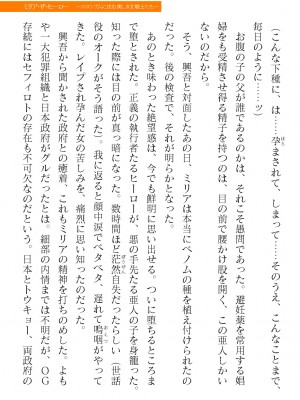 ミリア・ザ・ヒーロー
(こんな下種に、は……孕まされて、しまって……そのうえ、こんなことまで、
毎日のように……ッ)
お腹の子の父が誰であるのかは、それこそ愚問であった。避妊薬を常用する娼
婦をも受精させ得る精子を持つのは、目の前で腰かけ股を開く、この亜人しかい
ないのだから。
そう、興吾と対面したあの日、ミリアは本当にベノムの種を植え付けられたの
だった。後の検査で、それが明らかとなった。
あのとき味わった絶望感は、今でも鮮明に思い出せる。ついに堕ちるところま
で堕とされた。正義の執行者たるヒーローが、悪の手先たる亜人の子を身籠った。
知った際には目の前が真っ暗になった。数時間ほど茫然自失だったらしい(世話
役のオークがそう語った)。我に返ると顔中涙でベタベタ、遅れて嗚咽がやって
くる。レイプされ孕んだ女の苦しみを、痛烈に思い知ったのだった。
興吾から聞かされた政府との癒着、これもミリアの精神を打ちのめした。よも
や一大犯罪組織と日本政府がグルだったとは。細部の内情までは不明だが、OG
存続にはセフィロトの存在も不可欠なのだという。日本とトウキョー、両政府の